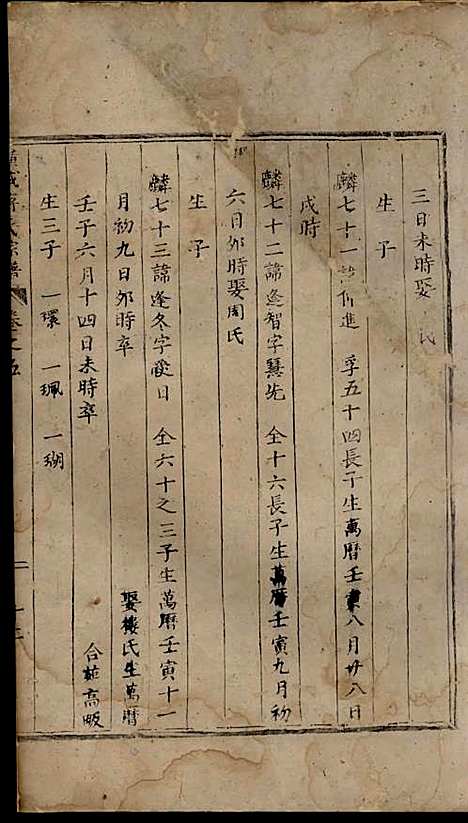 三日未時娶 氏
生子
麟七十一諱 進 孚五十四長子生萬曆壬寅八月廿八日
戌時
麟七十二諱逢智字慧先 全十六長子生萬曆壬寅九月初
六日卯時娶周氏
生子
麟七十三諱逢冬字啟日 全六十之三子生萬曆壬寅十一
月初九日卯時卒 娶樓氏生萬曆
壬子六月十四日未時卒 合葬高畈
生三子 一環 一珮 一瑚
氏宗譜 卷之五